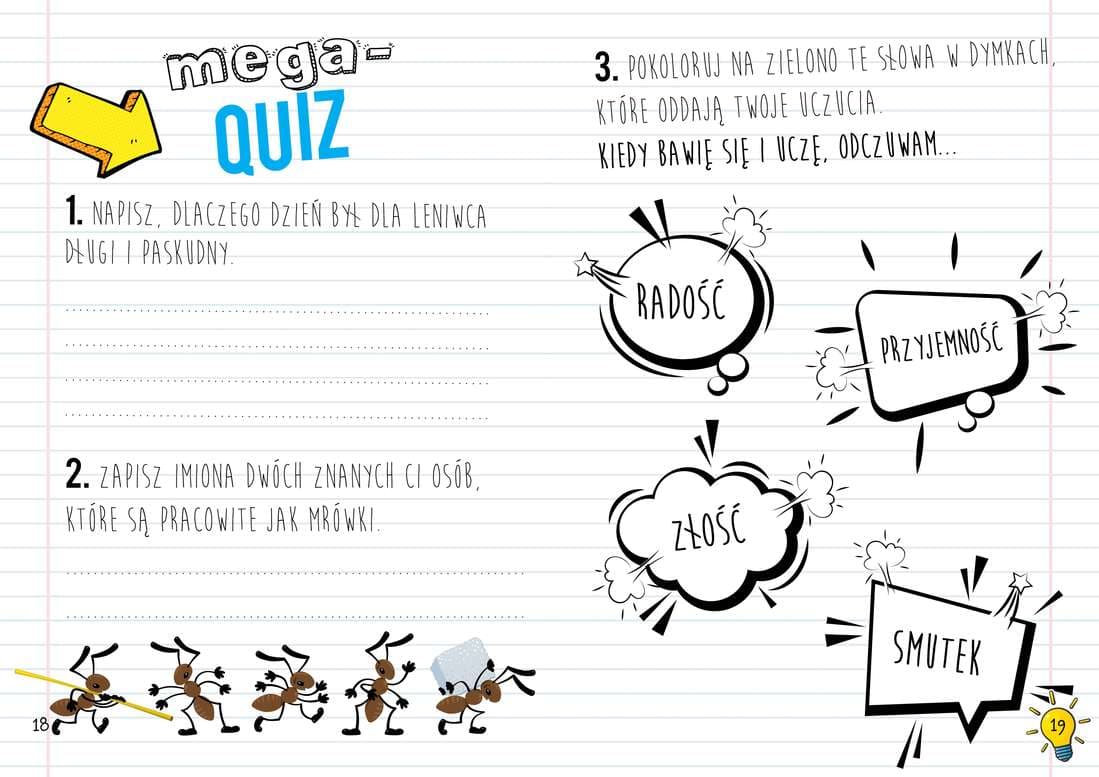 mega-
QUIZ
1. NAPISZ, DLACZEGO DZIEŃ BYŁ DLA LENIWCA
DŁUGI I PASKUDNY.
2. ZAPISZ IMIONA DWÓCH ZNANYCH CI OSÓB,
KTÓRE SĄ PRACOWITE JAK MRÓWKI.
18
3. POKOLORUJ NA ZIELONO TE SŁOWA W DYMKACH,
KTÓRE ODDAJĄ TWOJE UCZUCIA.
KIEDY BAWIĘ SIĘ I UCZĘ, ODCZUWAM...
RADOŚĆ
PRZYJEMNOŚĆ
ZŁOŚĆ
SMUTEK
19